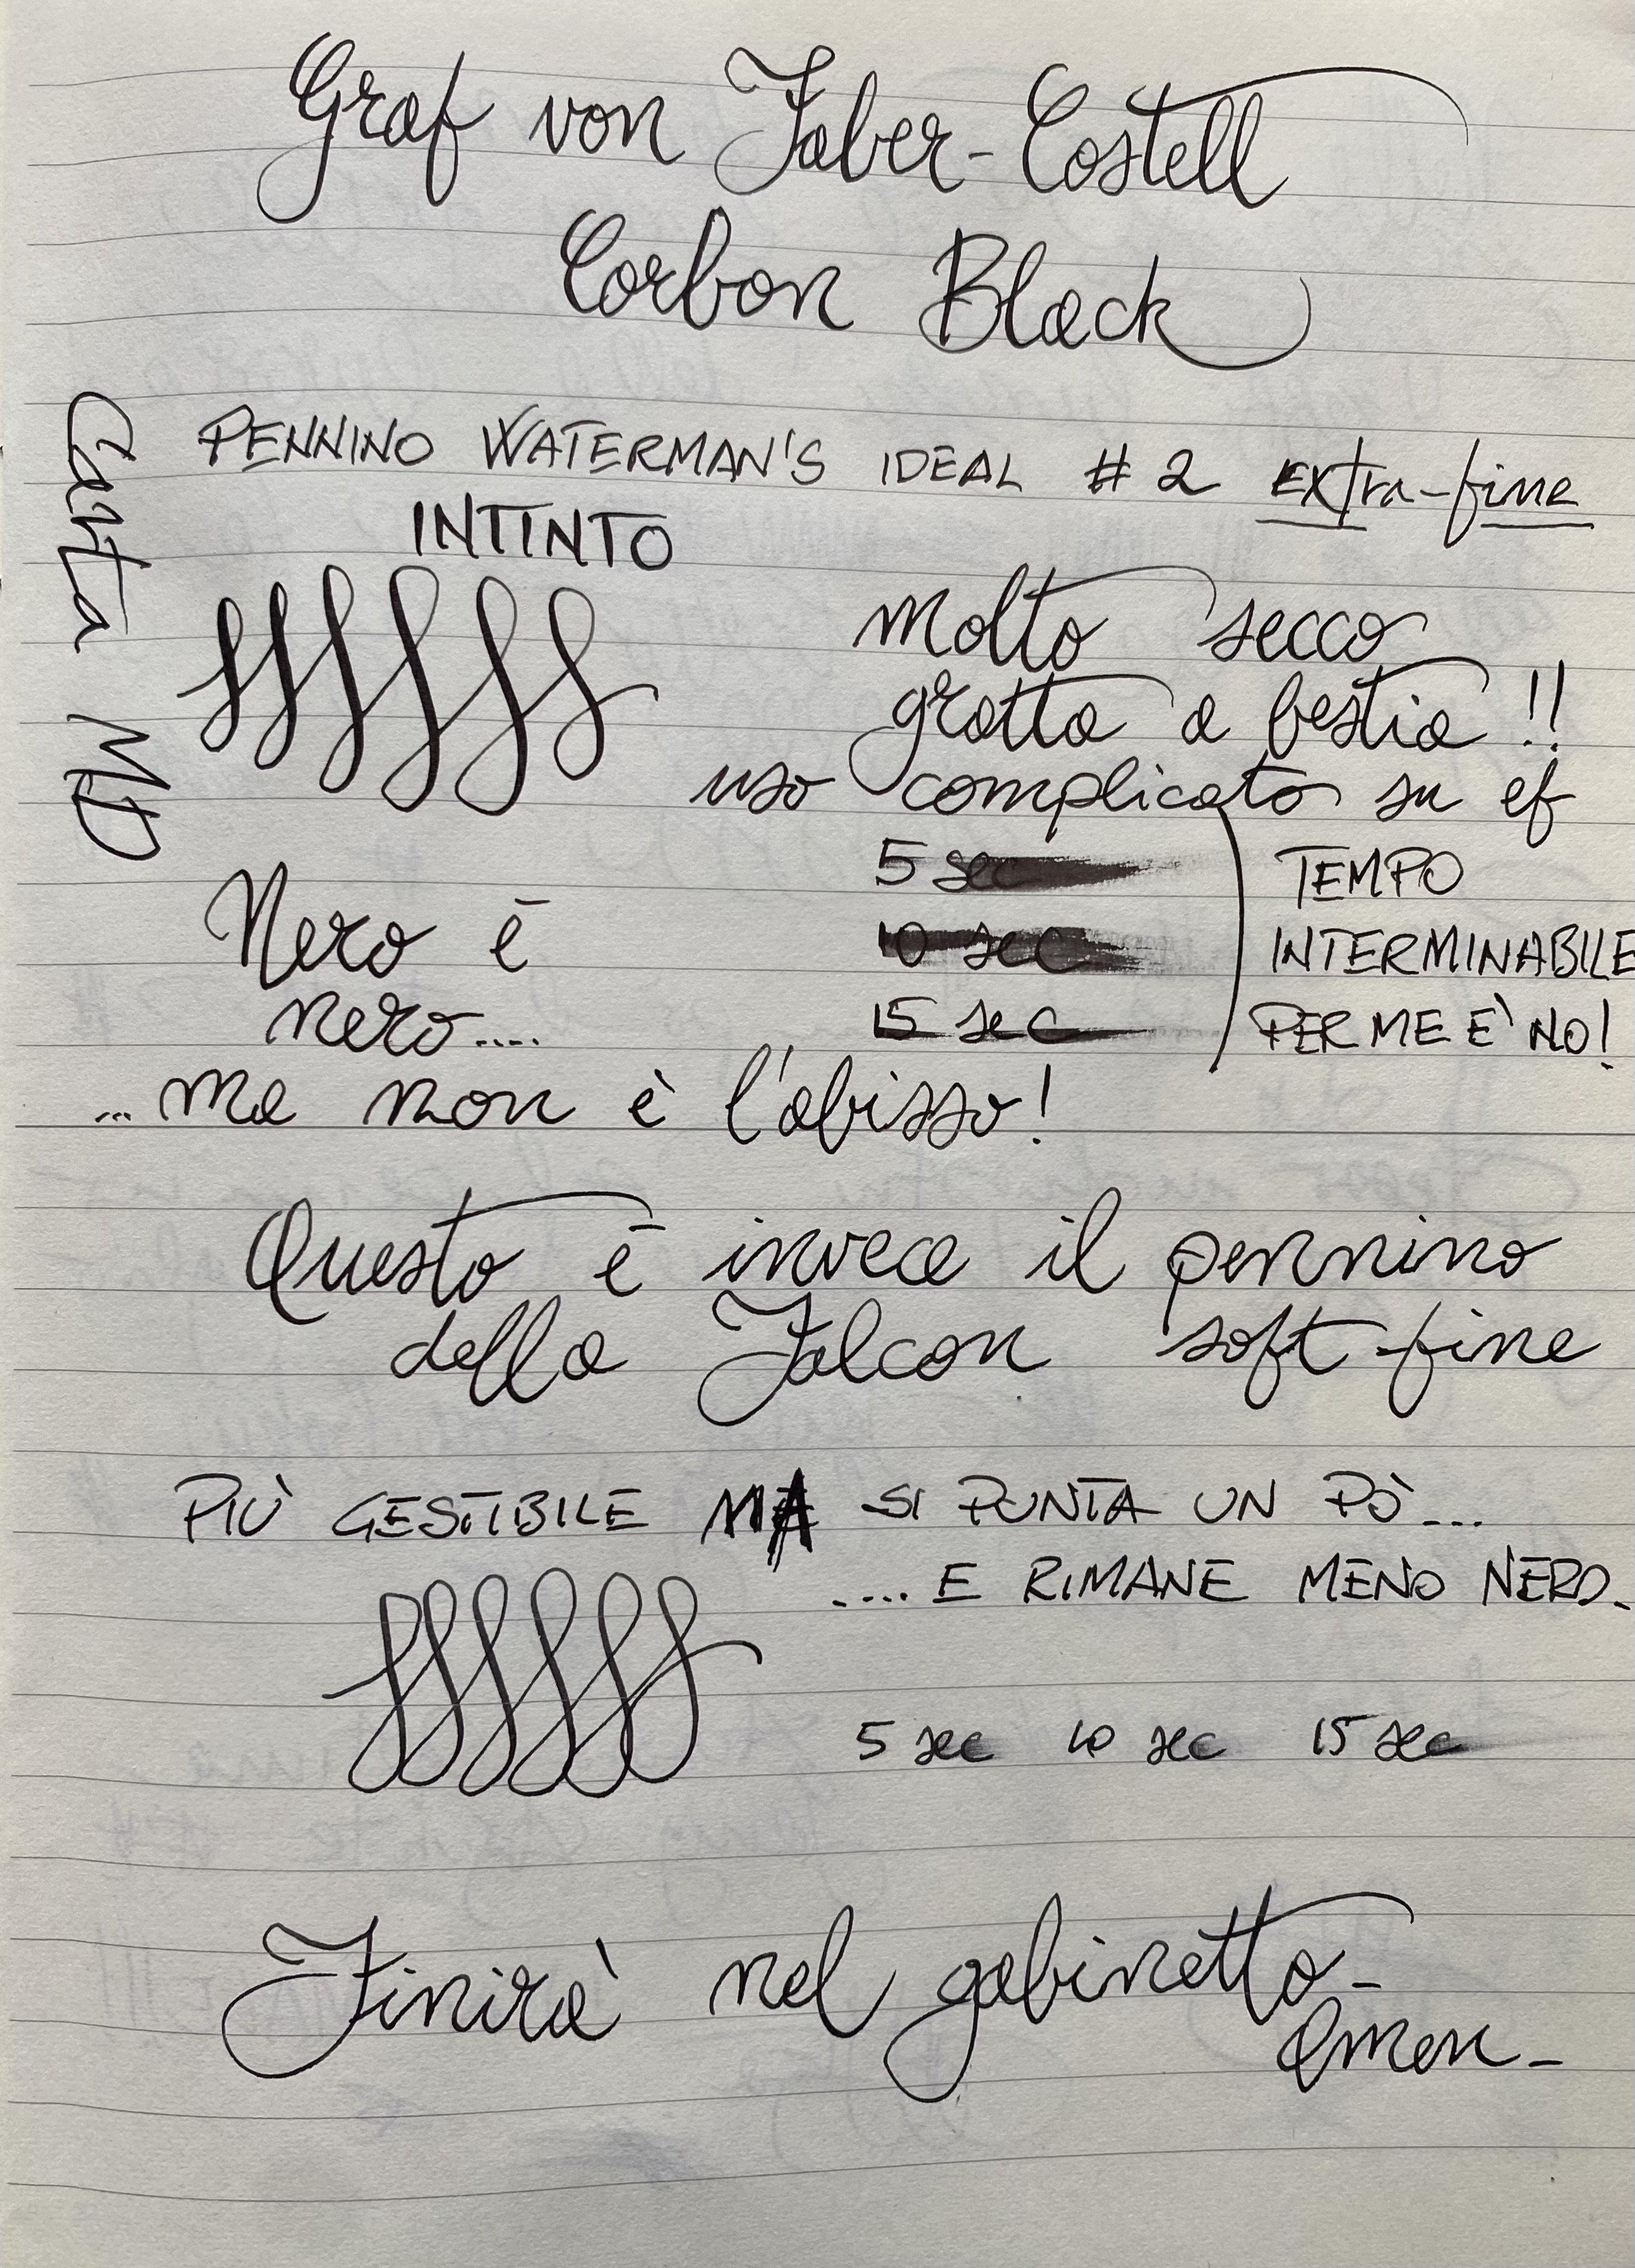 Graf von Faber-Castell
Carbon Black
Carta MD
PENNINO WATERMAN'S IDEAL #2 Extra-fine
INTINTO
Molto secco
gratta a bestia!!
uso complicato su ef
5 sec
10 sec
15 sec
TEMPO
INTERMINABILE
PER ME E' NO!
Nero è
nero....
...ma non è l'abisso!
Questo è invece il pennino
della Falcon soft-fine
PIÙ GESTIBILE MA SI PUNTA UN PÒ...
....E RIMANE MENO NERO.
5 sec 10 sec 15 sec
Finirà nel gabinetto-
Amen-